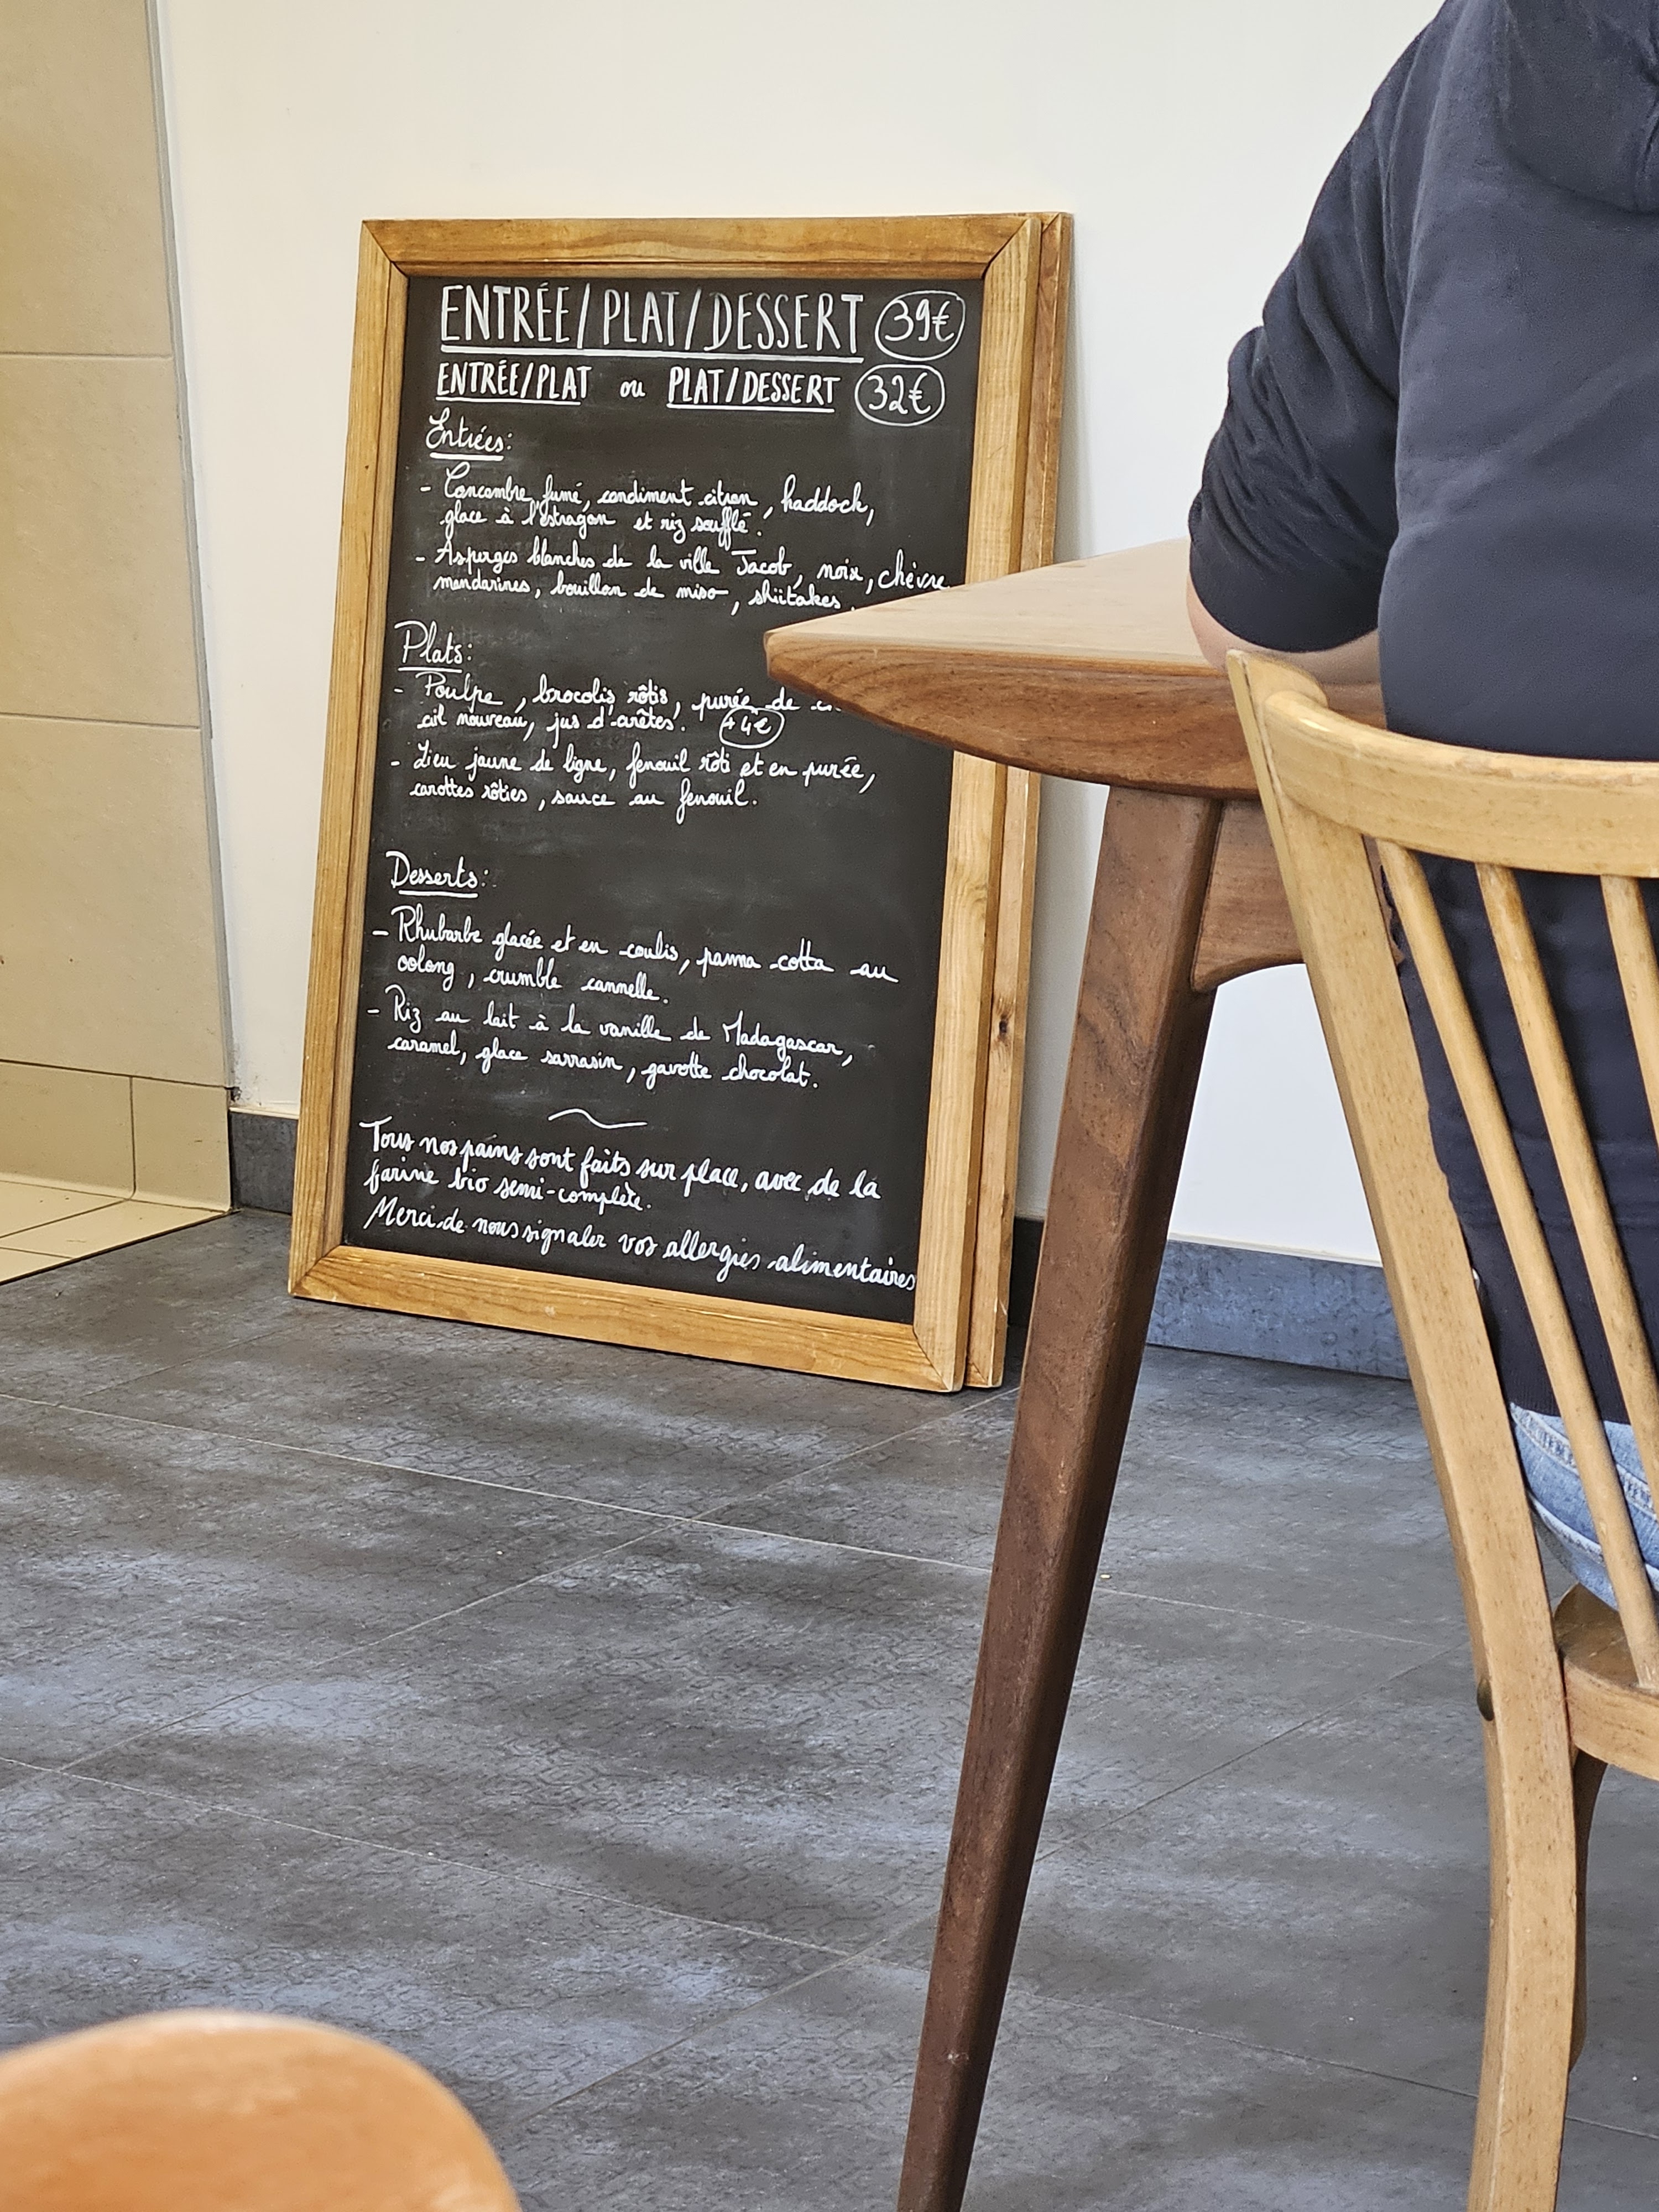 ENTRÉE/PLAT/DESSERT 39€
ENTRÉE/PLAT ou PLAT/DESSERT 32€
Entrées:
- Concombre fumé, condiment citron, haddock,
glace à l'estragon et riz soufflé.
- Asperges blanches de la ville Jacob, noix, chèvre
mandarines, bouillon de miso, shiitakes
Plats:
- Poulpe, brocolis rôtis, purée de
ail nouveau, jus d'arêtes. +4€
- Lieu jaune de ligne, fenouil rôti et en purée,
carottes rôties, sauce au fenouil.
Desserts:
- Rhubarbe glacée et en coulis, panna cotta au
oolong, crumble cannelle.
- Riz au lait à la vanille de Madagascar,
caramel, glace sarrasin, gavotte chocolat.
Tous nos pains sont faits sur place, avec de la
farine bio semi-complète.
Merci de nous signaler vos allergies alimentaires